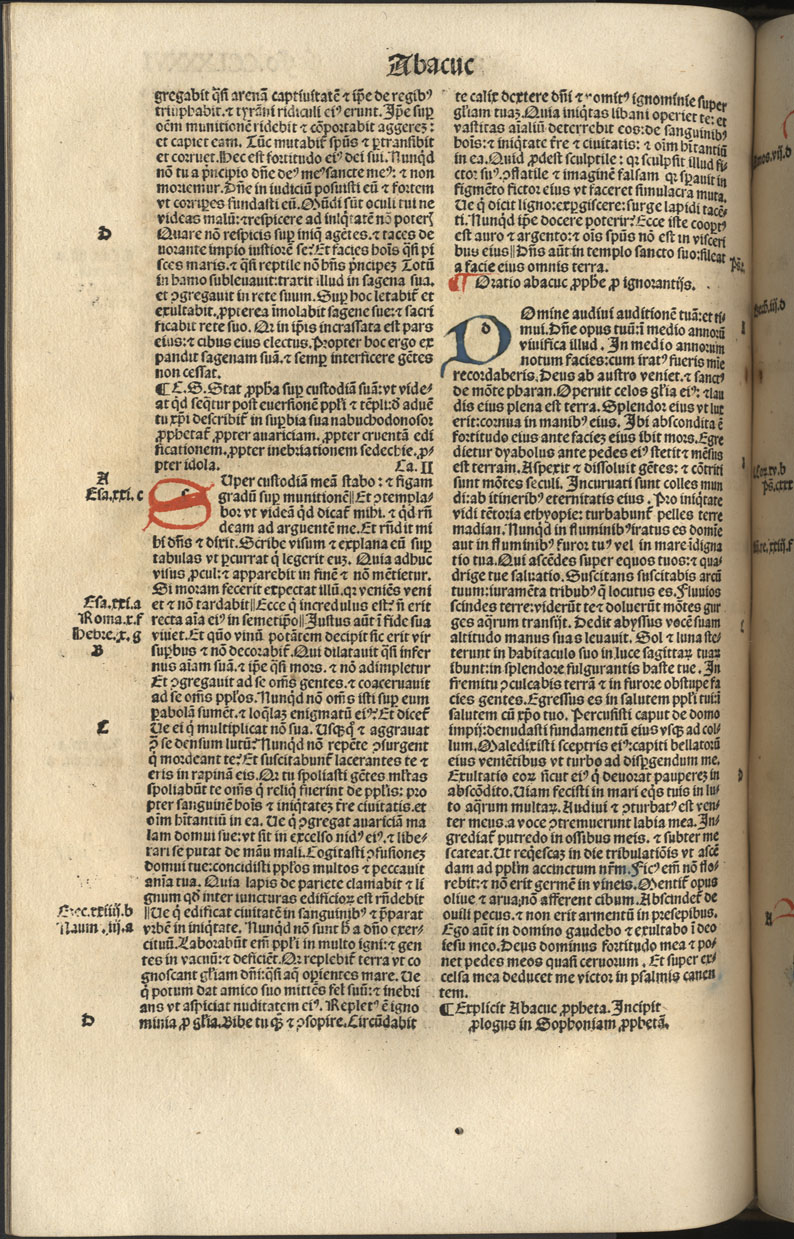 Abacuc
gregabit q̄si arenā captiuitatē ⁊ ip̄e de regibꝰ
triūphabit. ⁊ tyrāni ridiculi eiꝰ erunt. Ip̄e sup̱
oēm munitionē ridebit ⁊ cōportabit aggerez:
et capiet eam. Tūc mutabit᷑ sp̄us ⁊ ꝑtransibit
et corruet. Hec est fortitudo eiꝰ dei sui. Nunqd
nō tu a p̄ncipio dn̄e deꝰ meꝰ sancte meꝰ: ⁊ non
moriemur. Dn̄e in iudiciū posuisti eū ⁊ fortem
vt corriꝑes fundasti eū. Mūdi sūt oculi tui ne
videas malū: ⁊ respicere ad iniq̄tatē nō poteris
D
Quare nō respicis sup̱ iniq̄ agētes. ⁊ taces de
uorante impio iustiorē se? Et facies hoīs q̄si pi
sces maris. ⁊ q̄si reptile nō hn̄s p̄ncipez Totū
in hamo subleuauit: traxit illud in sagena sua.
et ↄgregauit in rete suum. Sup̱ hoc letabit᷑ et
exultabit. ꝓpterea īmolabit sagene sue: ⁊ sacri
ficabit rete suo. Qr in ip̄is incrassata est pars
eius: ⁊ cibus eius electus. Propter hoc ergo ex
pandit sagenam suā. ⁊ semꝑ interficere gētes
non cessat.
¶ C. S. Stat ꝓpha sup̱ custodiā suā: vt vide⸗
at qd seq̄tur post euersionē ppl̄i ⁊ tēpli: d̄ aduē
tu xp̄i describit᷑ in sup̱bia sua nabuchodonosor
ꝓphetat᷑ ꝓpter auariciam. ꝓpter cruentā edi
ficationem. ꝓpter inebriationem sedechie. ꝓ⸗
pter idola. Ca. II
A
Esa. xxi. c
SUper custodiā meā stabo: ⁊ figam
gradū sup̱ munitionē || Et ↄtempla⸗
bor vt videā qd dicat᷑ mihi. ⁊ qd rn̄
deam ad arguentē me. Et rn̄dit mi
hi dn̄s ⁊ dixit. Scribe visum ⁊ explana eū sup̱
tabulas vt ꝑcurrat q̄ legerit euz. Quia adhuc
visus ꝓcul: ⁊ apparebit in finē ⁊ nō mētietur.
Si moram fecerit expectat illū. qr veniēs veni
Esa. xxi. a
et ⁊ nō tardabit || Ecce q̄ incredulus est: n̄ erit
Roma. x. f
recta aīa eiꝰ in semetip̄o || Justus aut̄ ī fide sua
Hebre. x. g
viuet. Et quō vinū potātem decipit sic erit vir
B
sup̱bus ⁊ nō decorabit᷑. Qui dilatauit q̄si infer
nus aīam suā. ⁊ ip̄e q̄si mors. ⁊ nō adimpletur
Et ↄgregauit ad se om̄s gentes. ⁊ coaceruauit
ad se om̄s ppl̄os. Nunqd nō om̄s isti sup̱ eum
ꝑabolā sumēt. ⁊ loq̄laz enigmatū eiꝰ? Et dicet᷑
C
Ue ei q̄ multiplicat nō sua. Usq̄q̄ ⁊ aggrauat
ↄ̄ se densum lutū? Nunqd nō repēte ↄsurgent
q̄ mordeant te? Et suscitabunt᷑ lacerantes te ⁊
eris in rapinā eis. Qr tu spoliasti gētes ml̄tas
spoliabūt te om̄s q̄ reliq̄ fuerint de ppl̄is: pro
pter sanguinē hoīs ⁊ iniq̄tatez tr̄e ciuitatis. et
oīm hītantiū in ea. Ue q̄ ↄgregat auariciā ma
lam domui sue: vt sit in excelso nidꝰ eiꝰ. ⁊ libe⸗
rari se putat de manu mali. Cogitasti ↄfusionez
domui tue: concidisti ppl̄os multos ⁊ peccauit
anīa tua. Quia lapis de pariete clamabit ⁊ li
gnum qd inter iuncturas edificiorꝝ est rn̄debit
Ezec. xxiiij. b
|| Ue q̄ edificat ciuitatē in sanguinibꝰ ⁊ p̄parat
Naum. iij. a
vrbē in iniq̄tate. Nunqd nō sunt h̄ a dn̄o exer⸗
cituū. Laborabūt em̄ ppl̄i in multo igni: ⁊ gen
tes in vacuū: ⁊ deficiēt. Qr replebit᷑ terra vt co
gnoscant gl̄iam dn̄i: q̄si aq̄ oꝑientes mare. Ue
q̄ potum dat amico suo mittēs fel suū: ⁊ inebri
ans vt aspiciat nuditatem eiꝰ. Repletꝰ ē igno
D
minia ꝓ gl̄ia. Bibe tu qꝫ ⁊ ↄsopire. Circūdabit
te calix dextere dn̄i ⁊ vomitꝰ ignominie super
gl̄iam tuaz. Quia iniq̄tas libani operiet te: et
vastitas aīaliū deterrebit eos: de sanguinibꝰ
hoīs: ⁊ iniq̄tate tr̄e ⁊ ciuitatis: ⁊ oīm hītantiū
in ea. Quid ꝓdest sculptile: qr sculpsit illud fi⸗
ctor suꝰ. ↄflatile ⁊ imaginē falsam qr sꝑauit in
figmēto fictor eius vt faceret simulacra muta.
Ue q̄ dicit ligno: exꝑgiscere: surge lapidi tacē⸗
ti. Nunqd ip̄e docere poterit? Ecce iste cooptꝰ
est auro ⁊ argento: ⁊ oīs sp̄us nō est in visceri
bus eius || Dn̄s aūt in templo sancto suo: sileat
a facie eius omnis terra.
¶ Oratio abacuc ꝓphe ꝓ ignorantijs.
DOmine audiui auditionē tuā: et ti⸗
mui. Dn̄e opus tuū: ī medio annorū
viuifica illud. In medio annorum
notum facies: cum iratꝰ fueris mīe
recordaberis. Deus ab austro veniet. ⁊ sanctꝰ
de mōte pharan. Operuit celos gl̄ia eiꝰ: ⁊ lau
dis eius plena est terra. Splendor eius vt lux
erit: cornua in manibꝰ eius. Ibi abscondita ē
fortitudo eius ante faciez eius ibit mors. Egre
dietur dyabolus ante pedes eiꝰ stetit ⁊ mēsus
est terram. Aspexit ⁊ dissoluit gētes: ⁊ cōtriti
sunt mōtes seculi. Incuruati sunt colles mun
di: ab itineribꝰ eternitatis eius. Pro iniq̄tate
vidi tētoria ethyopie: turbabunt᷑ pelles terre
madian. Nunqd in fluminibꝰ iratus es domīe
aut in fluminibꝰ furor tuꝰ vel in mare īdigna
tio tua. Qui ascēdes super equos tuos: ⁊ qua⸗
drige tue saluatio. Suscitans suscitabis arcū
tuum: iuramēta tribubꝰ q̄ locutus es. Fluuios
scindes terre: viderūt te ⁊ doluerūt mōtes gur
ges aq̄rum transijt. Dedit abyssus vocē suam
altitudo manus sua leuauit. Sol ⁊ luna ste⸗
terunt in habitaculo suo in luce sagittaꝝ tuaꝝ
ibunt: in splendore fulgurantis haste tue. In
fremitu ↄculcabis terrā ⁊ in furore obstupefa
cies gentes. Egressus es in salutem ppl̄i tui: ī
salutem cū xp̄o tuo. Percussisti caput de domo
impij: denudasti fundamētū eius vsqꝫ ad col⸗
lum. Maledixisti sceptris eiꝰ: capiti bellatorū
eius veniētibus vt turbo ad disꝑgendum me.
Exultatio eorꝝ sicut eiꝰ q̄ deuorat pauperez in
abscōdito. Uiam fecisti in mari eqs tuis in lu⸗
to aq̄rum multaꝝ. Audiui ⁊ ↄturbatꝰ est ven⸗
ter meus. a voce ↄtremuerunt labia mea. In⸗
grediat᷑ putredo in ossibus meis. ⁊ subter me
scateat. Ut reqescaz in die tribulatiōis vt ascē
dam ad ppl̄m accinctum nr̄m. Ficꝰ em̄ nō flo⸗
rebit: ⁊ nō erit germē in vineis. Mentit᷑ opus
oliue ⁊ arua: nō afferent cibum. Abscindet᷑ de
ouili pecus. ⁊ non erit armentū in presepibus.
Ego aūt in domino gaudebo ⁊ exultabo ī deo
iesu meo. Deus dominus fortitudo mea ⁊ po⸗
net pedes meos quasi ceruorum. Et super ex⸗
celsa mea deducet me victor in psalmis canen
tem.
¶ Explicit Abacuc ꝓpheta. Incipit
ꝓlogus in Sophoniam ꝓphetā.